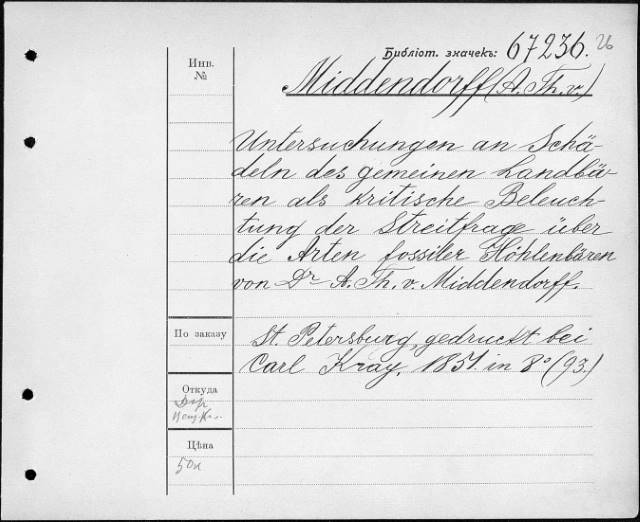 Библіот. значекъ: 67236. 26
Инв.
№
Middendorff (A. Th. v.)
Untersuchungen an Schä-
deln des gemeinen Landbä-
ren als kritische Beleuch-
tung der Streitfrage über
die Arten fossiler Höhlenbären
von Dr A. Th. v. Middendorff.
По заказу
St. Petersburg, gedruckt bei
Carl Kray, 1851. in 8° (93.)
Откуда
Цѣна
50к